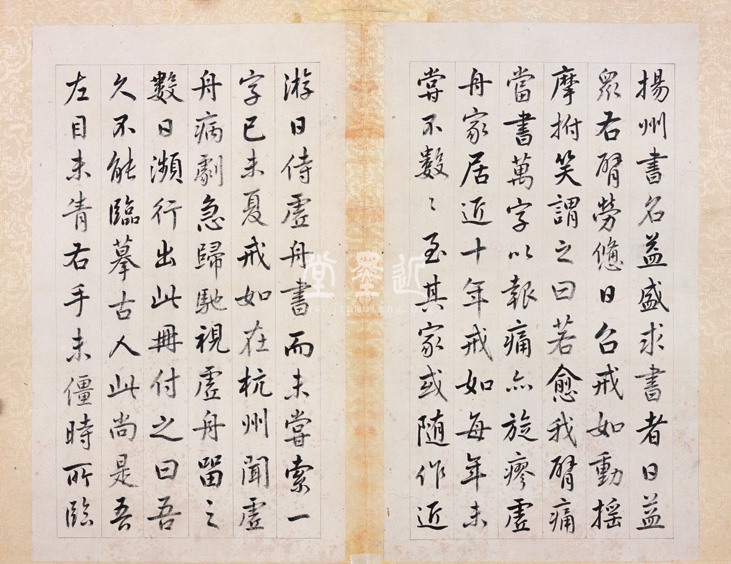 揚州書名益盛求書者日益
眾右臂勞憊日召戒如動搖
摩拊笑謂之曰若愈我臂痛
當書萬字以報痛亦旋瘳虛
舟家居近十年戒如每年未
嘗不數〻至其家或随作近
游日侍虛舟書而未嘗索一
字己未夏戒如在杭州聞虛
舟病劇急歸馳視虛舟留之
數日瀕行出此冊付之曰吾
久不能臨摹古人此尚是吾
左目未眚右手未僵時所臨
近墨堂